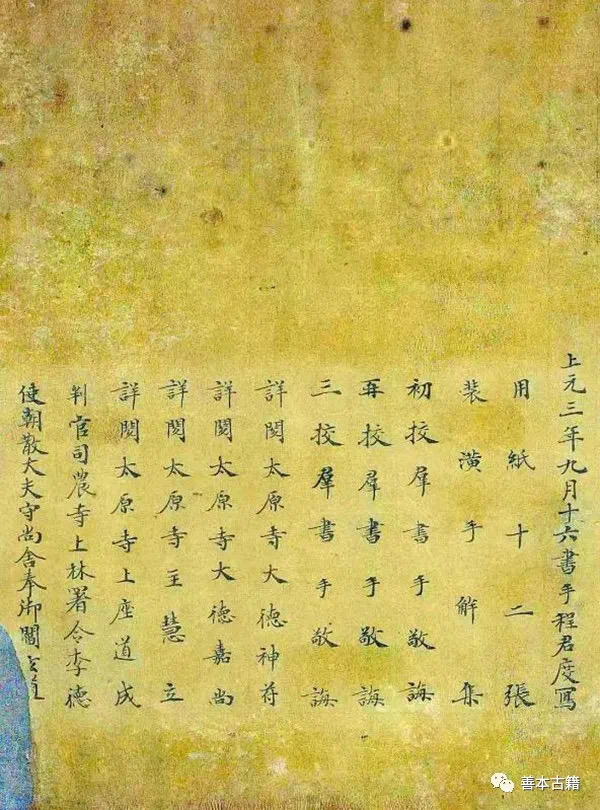 上元三年九月十六書手程君度寫
用紙十二張
装潢手解集
初挍羣書手敬誨
再挍羣書手敬誨
三挍羣書手敬誨
詳閱太原寺大德神苻
詳閱太原寺大德嘉尚
詳閱太原寺主慧立
詳閱太原寺上座道成
判官司農寺上林署令李德
使朝散大夫守尚舍奉御閻玄道
善本古籍